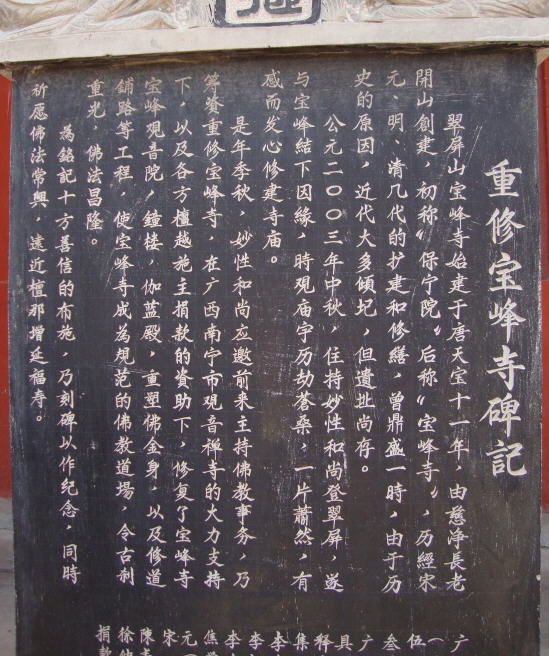 重修宝峰寺碑記
翠屏山宝峰寺始建于唐天宝十一年，由慈净長老
開山創建，初称“保宁院”，后称“宝峰寺”，历經宋
元、明、清几代的扩建和修繕，曾鼎盛一時，由于历
史的原因，近代大多傾圮，但遺址尚存。
公元二〇〇三年中秋，住持妙性和尚登翠屏，遂
与宝峰結下因緣，時观庙宇历劫蒼桑，一片蕭然，有
感而发心修建寺庙。
是年季秋，妙性和尚应邀前来主持佛教事务，乃
筹眷重修宝峰寺，在广西南宁市观音禅寺的大力支持
下，以及各方檀越施主捐款的資助下，修复了宝峰寺
宝峰观音院，鐘楼，伽蓝殿，重塑佛金身，以及修道
鋪路等工程，使宝峰寺成為規范的佛教道場，令古刹
重光，佛法昌隆。
為銘記十方善信的布施，乃刻碑以作纪念，同時
祈愿佛法常興，遠近檀那增延福寿。
广
伍一
叁
广
具
释
集
李
李
李
焦
元一
宋
陳
徐
捐款